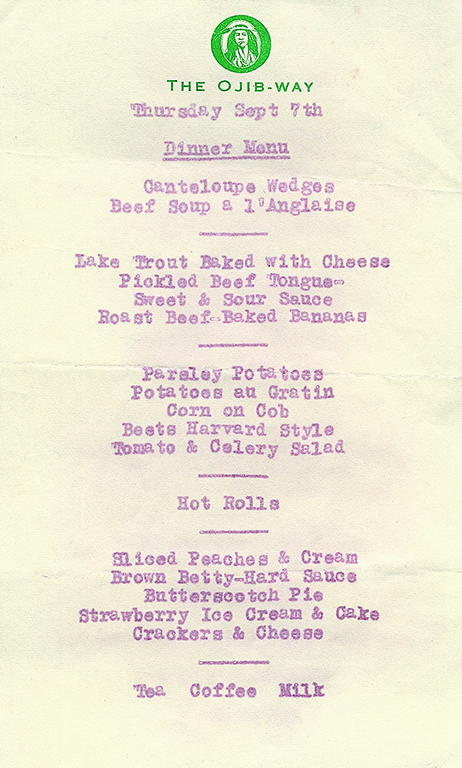 THE OJIB-WAY
Thursday Sept 7th
Dinner Menu
Canteloupe Wedges
Beef Soup a l'Anglaise
Lake Trout Baked with Cheese
Pickled Beef Tongue-
Sweet & Sour Sauce
Roast Beef-Baked Bananas
Parsley Potatoes
Potatoes au Gratin
Corn on Cob
Beets Harvard Style
Tomato & Celery Salad
Hot Rolls
Sliced Peaches & Cream
Brown Betty-Hard Sauce
Butterscotch Pie
Strawberry Ice Cream & Cake
Crackers & Cheese
Tea Coffee Milk